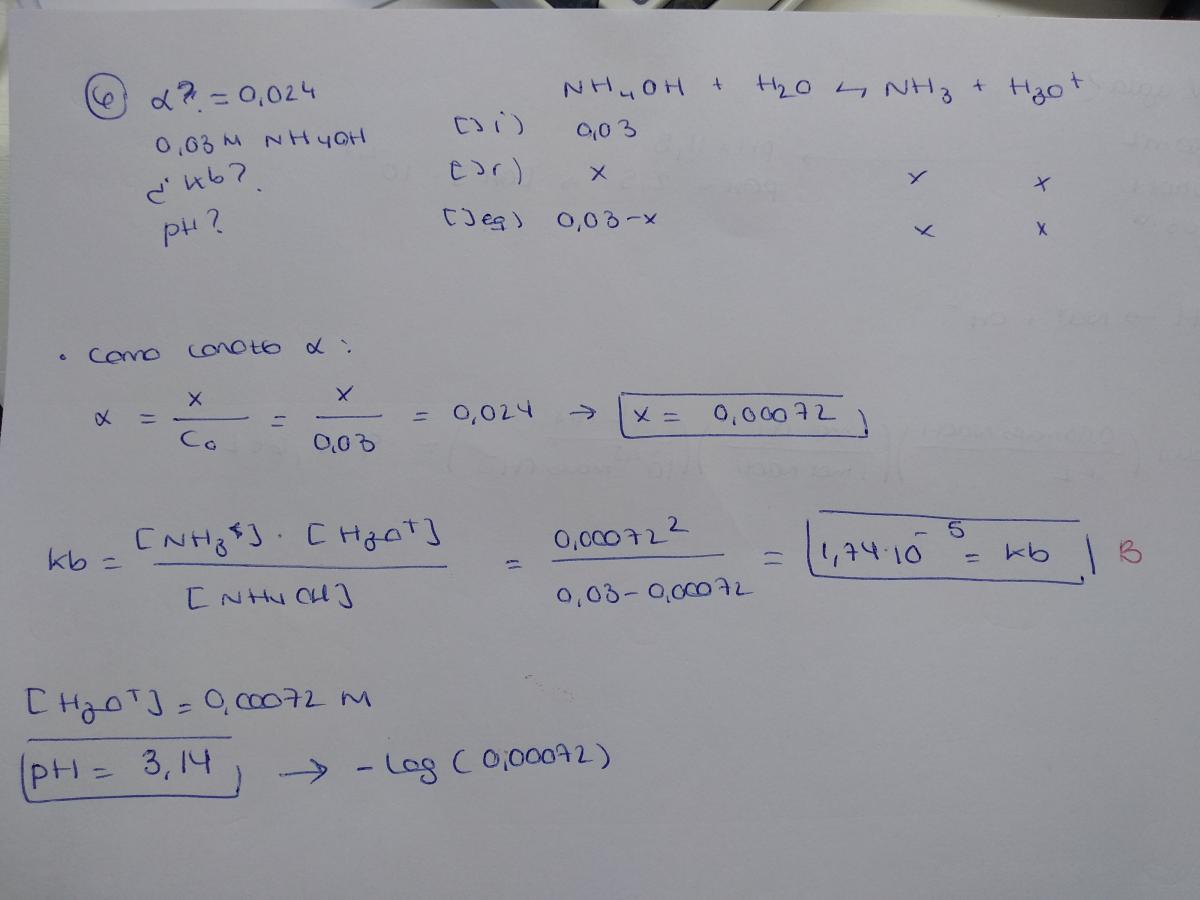 ⑥ α? = 0,024
NH4OH + H2O ⇆ NH3 + H3O+
0,03 M NH4OH
[ ]i) 0,03
¿Kb?
[ ]r) x x x
pH?
[ ]eq) 0,03-x x x
• Como conozco α:
α = x/C0 = x/0,03 = 0,024 → x = 0,00072
kb = [NH3+] · [H3O+] / [NH4OH] = 0,00072² / 0,03-0,00072 = 1,74·10⁻⁵ = kb B
[H3O+] = 0,00072 M
pH = 3,14 → -log (0,00072)